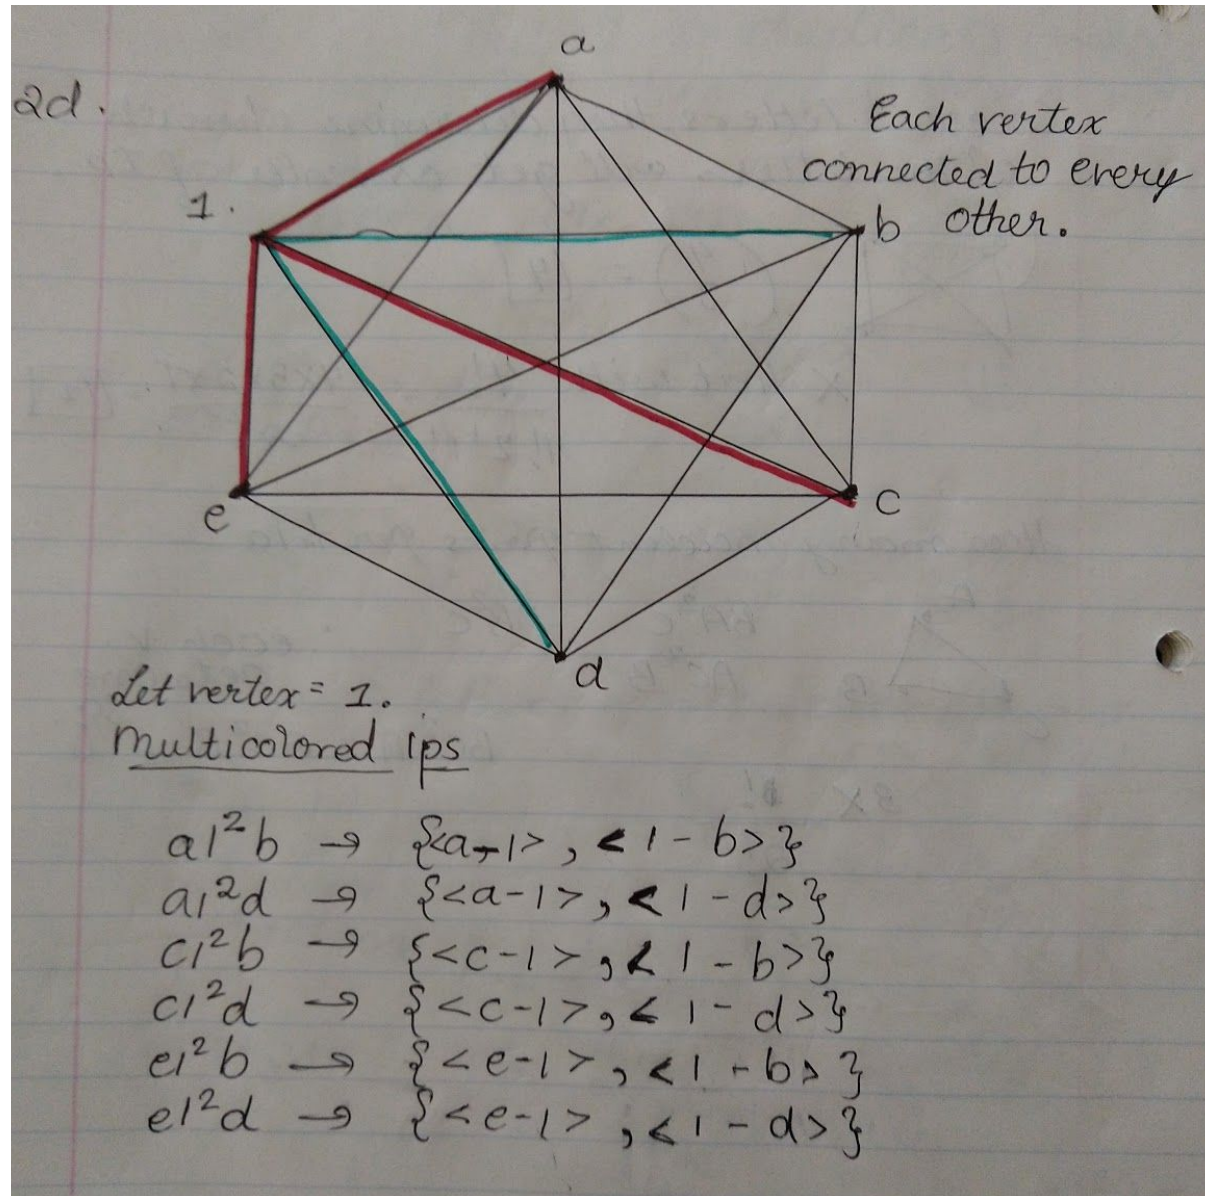 2d.
a
Each vertex
connected to every
other.
1.
b
e
c
d
Let vertex = 1.
Multicolored ips
a1²b → {<a-1>, <1-b>}
a1²d → {<a-1>, <1-d>}
c1²b → {<c-1>, <1-b>}
c1²d → {<c-1>, <1-d>}
e1²b → {<e-1>, <1-b>}
e1²d → {<e-1>, <1-d>}